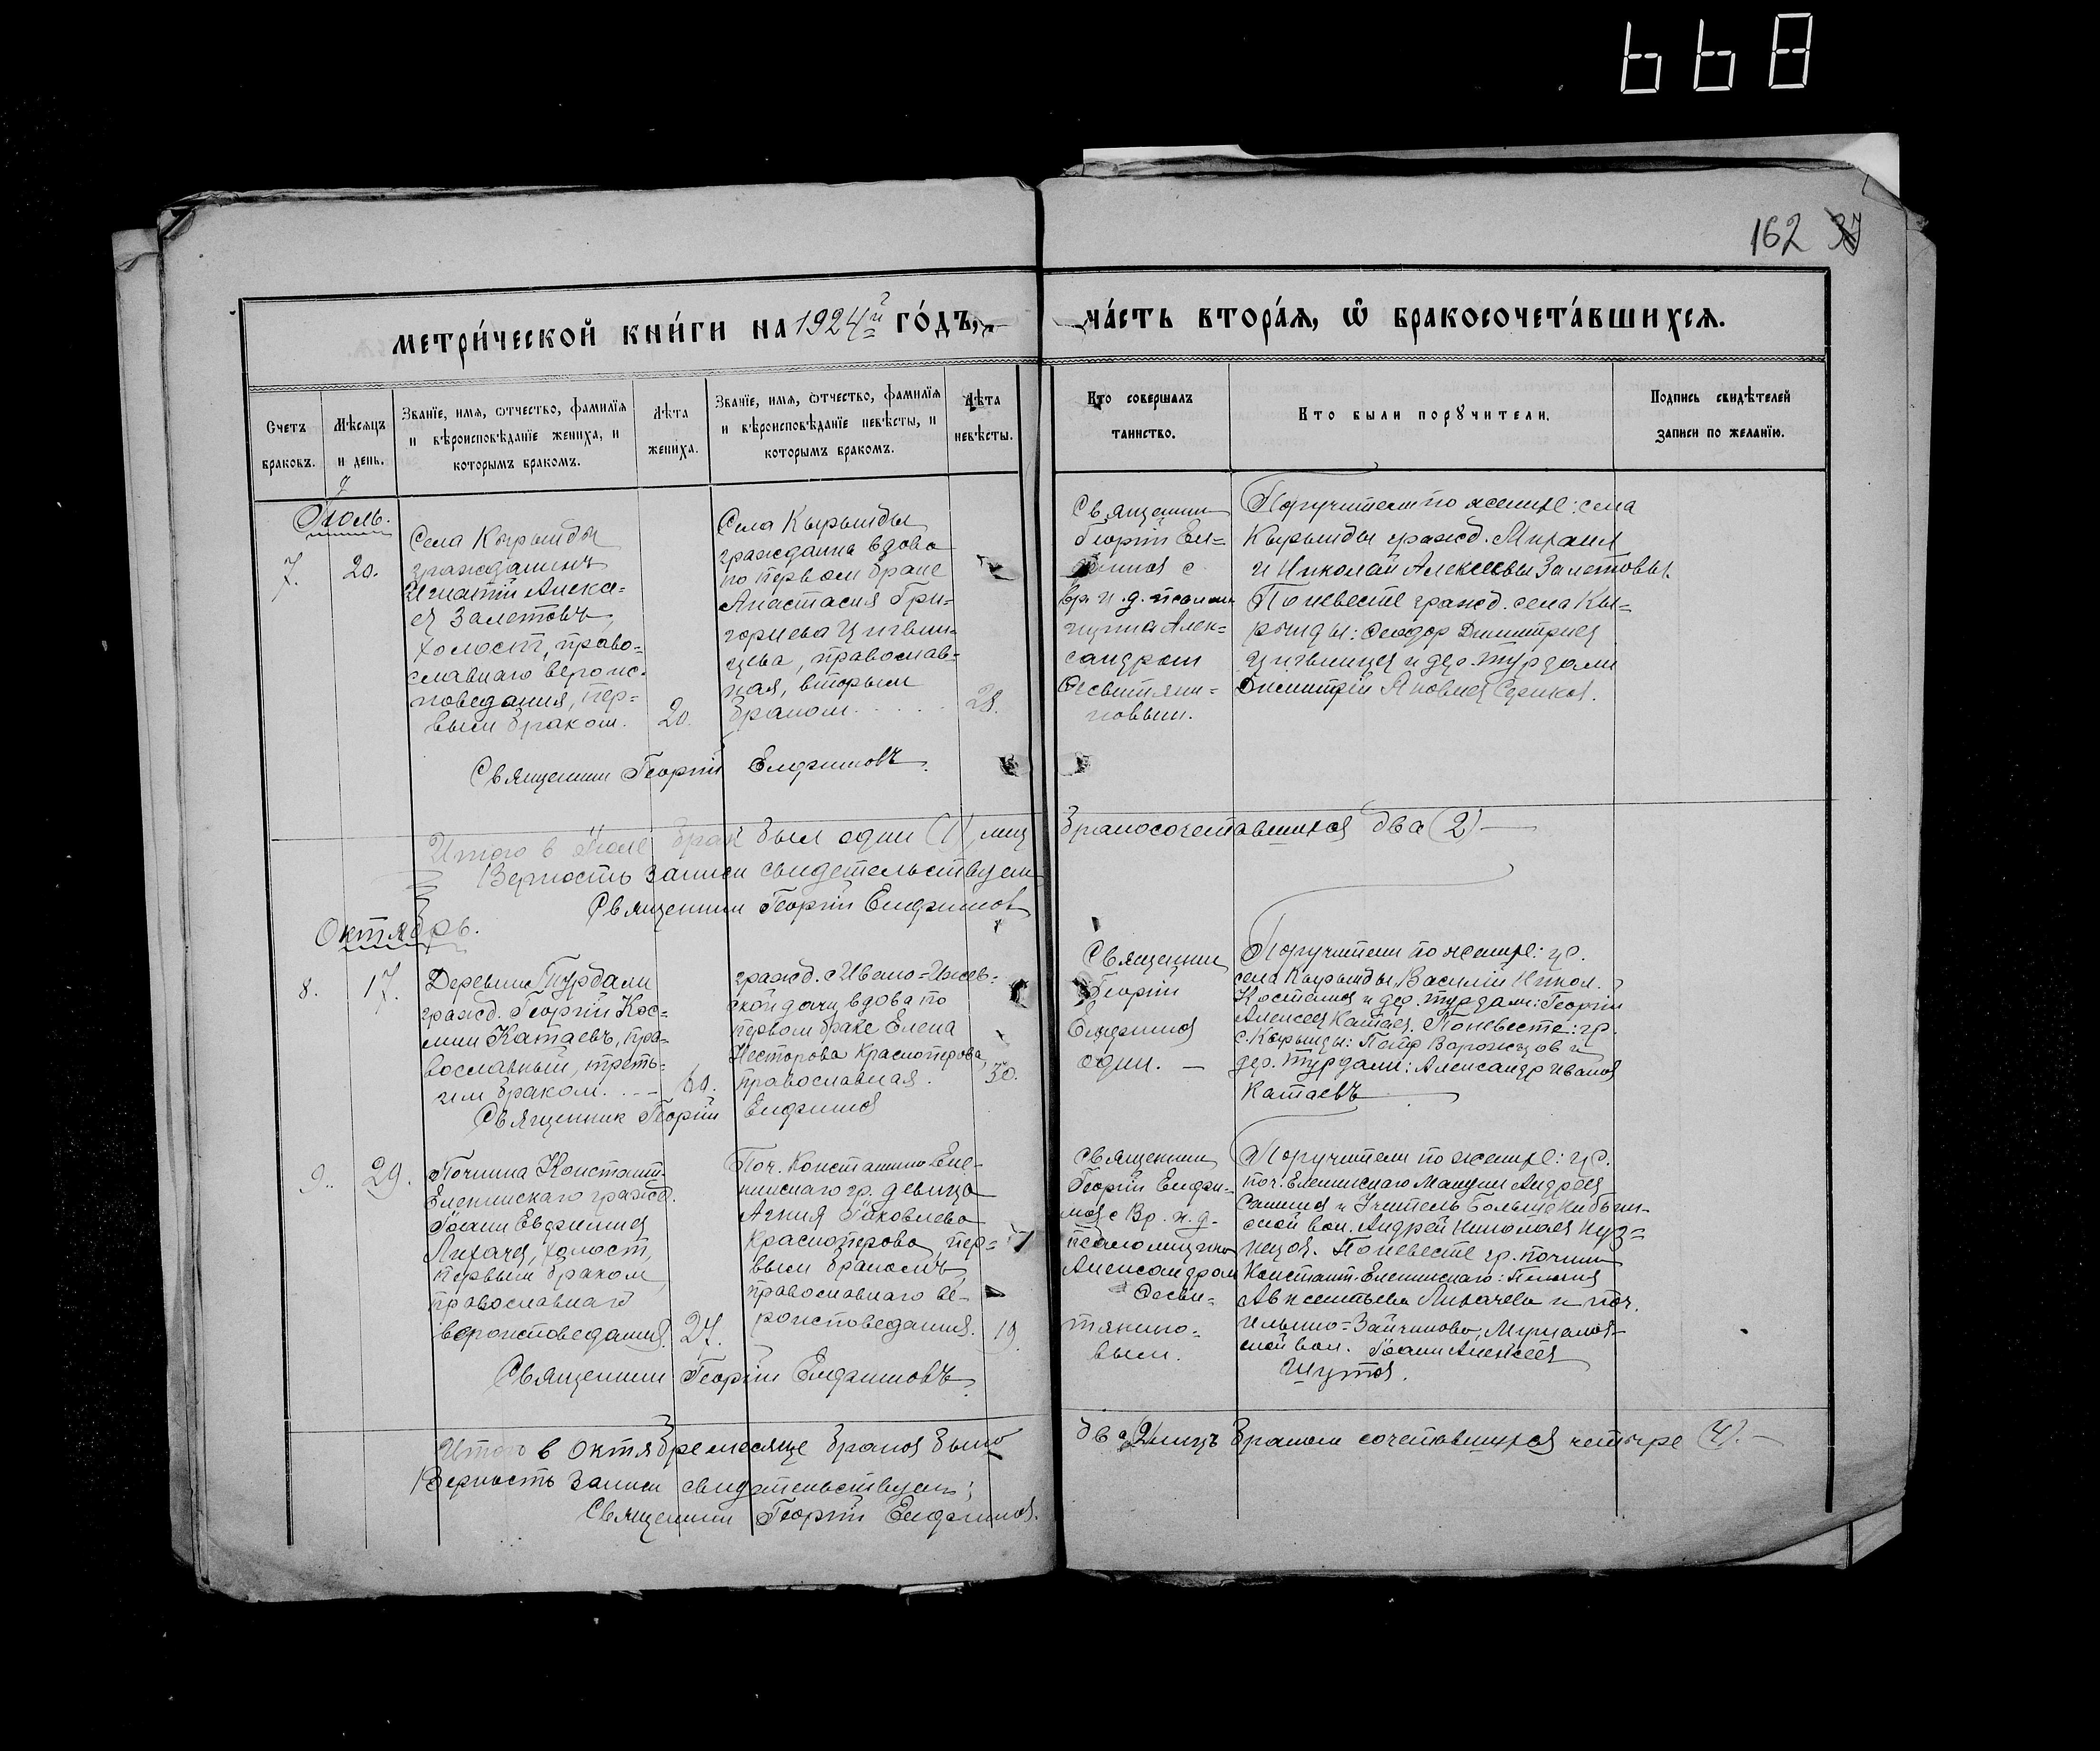 668
162 37
метри́ческой кни́ги на 1924й го́дъ,
ча́сть втора́я, ѡ҆ бракосочета́вшихся.
Счетъ
браковъ.
Мѣсяцъ
и день.
Званїе, имя, ѿтчество, фамилїя
и вѣроисповѣданїе жениха, и
которымъ бракомъ.
Лѣта
жениха.
Званїе, имя, ѿтчество, фамилїя
и вѣроисповѣданїе невѣсты, и
которымъ бракомъ.
Лѣта
невѣсты.
Кто совершалъ
таинство.
Кто были порꙋчители.
Подпись свидѣтелей
записи по желанїю.
Июль.
7.
20.
Села Кырынды
гражданинъ
Игнатій Алексе=
ев Залетовъ,
холост, право=
славнаго вероис=
поведания, пер=
вым браком.
20.
Села Кырынды
гражданка вдова
по первом браке
Анастасия Гри=
горьева
православ=
ная, вторым
браком
28.
Священник
Георгій
с
вр. и. д. псалом
щика Алек=
сандром
Осветлян=
новым.
Поручители по женихе: села
Кырынды гражд. Михаил
и Николай Алексеевы Залетовы.
По невесте гражд. села Кы=
рынды: Феодор Димитриев
и дер. Турдали
Димитрій Яковлев
Священник Георгій Елфимовъ.
Итого в Июле брак был один (1), лиц
бракосочетавшихся два (2)
Верность записи свидетельствуем
Священник Георгій Елфимов
Октябрь.
8.
17.
Деревни Турдали
гражд. Георгій Кос=
мин Катаевъ, пра=
вославный, треть=
им браком.
60.
гражд. Ивано=Ижев=
ской дачи вдова по
первом браке Елена
Несторова Красноперова,
православная.
30.
Священник
Георгій
Елфимов
один.
Поручители по женихе: гр.
села Кырынды Василій Никол.
Костылев и дер. Турдали: Георгій
Алексеев Катаев. По невесте: гр.
с. Кырынды: Петр Ворожцов и
дер. Турдали: Александр Иванов
Катаевъ
Священник Георгій Елфимов
9.
29.
Починка Константи.
Еленинскаго гражд.
Іоанн Евфимиев
Лихачев, холост,
первым браком,
православнаго
вероисповедания.
27.
Поч. Константино Еле=
нинскаго гр. девица
Агния Іаковлева
Красноперова, пер=
вым бракомъ,
православнаго ве=
роисповедания.
19.
Священник
Георгій Елфи=
мов с Вр. и. д.
псаломщика
Александром
Осве=
тлянно=
вым.
Поручители по женихе: гр.
поч. Еленинскаго Андреев
и Учитель Больше
ской вол. Андрей Николаев Куз=
нецов. По невесте гр. починка
Констант.=Еленинскаго:
Авксентьева Лихачева и поч.
Ильино=Зайчиково,
ской вол. Іоанн Алексеев
Шутов.
Священник Георгій Елфимовъ.
Итого в Октябре месяце браков было
два (2) лицъ браком сочетавшихся четыре (4).
Верность записи свидетельствуем:
Священник Георгій Елфимов.